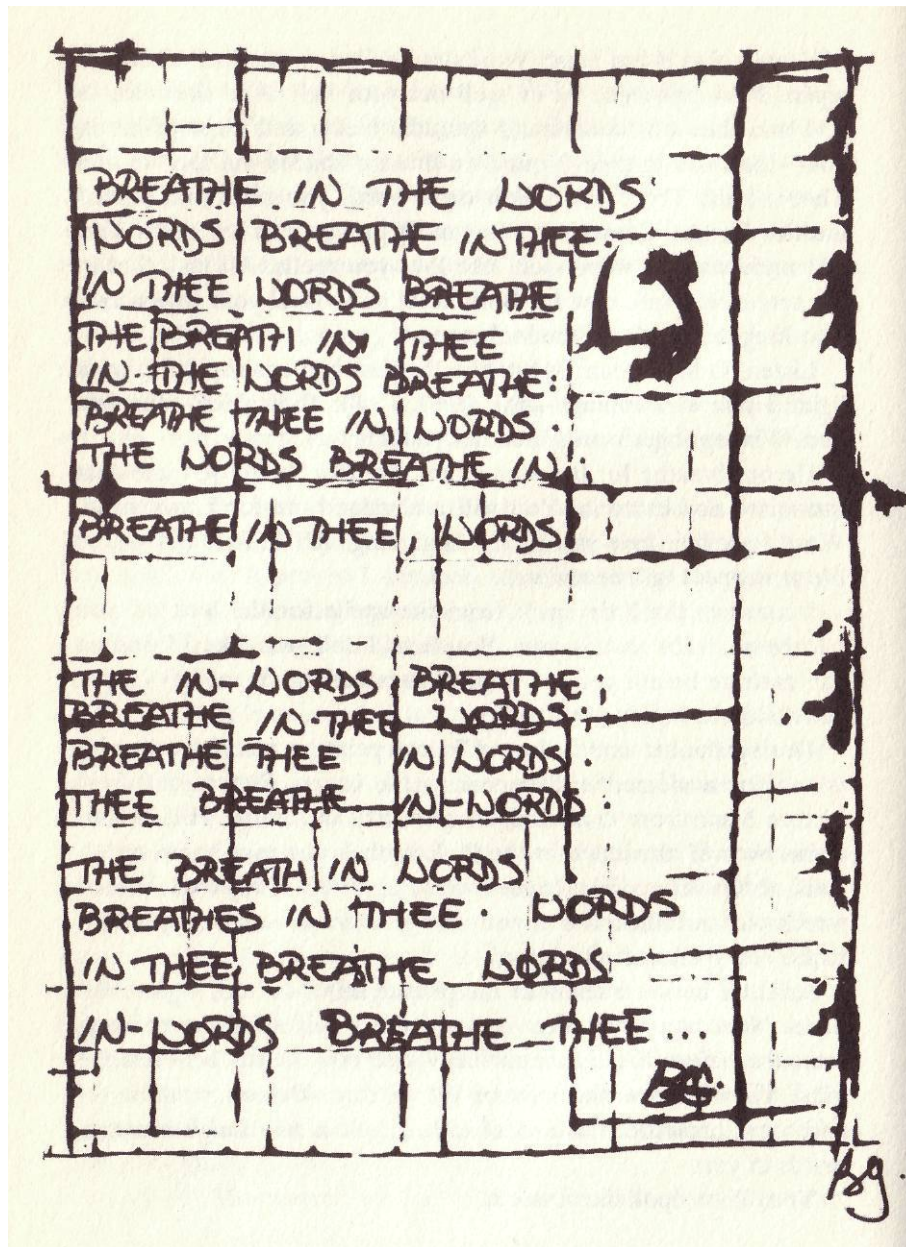 BREATHE IN THE WORDS:
WORDS BREATHE IN THEE:
IN THEE WORDS BREATHE
THE BREATH IN THEE
IN THE WORDS BREATHE:
BREATHE THEE IN WORDS:
THE WORDS BREATHE IN:
BREATHE IN THEE WORDS
THE IN-WORDS BREATHE
BREATHE IN THEE WORDS:
BREATHE THEE IN WORDS:
THEE BREATHE IN-WORDS:
THE BREATH IN WORDS
BREATHES IN THEE WORDS
IN THEE BREATHE WORDS
IN-WORDS BREATHE THEE
BG.